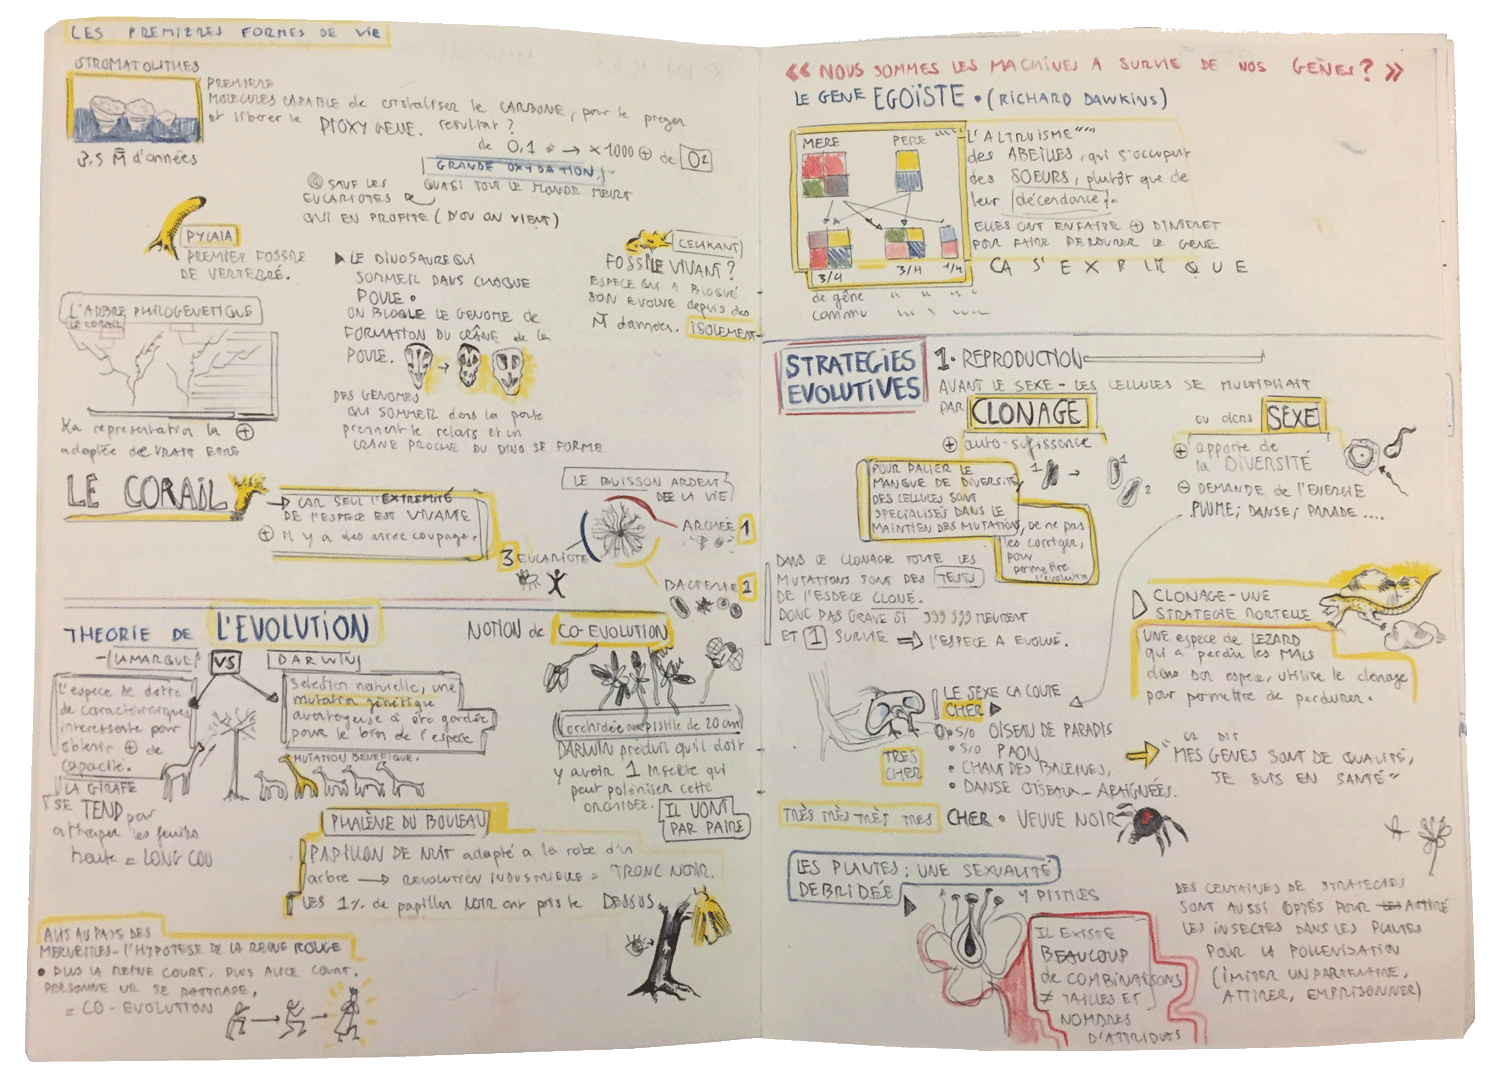 LES PREMIÈRES FORMES DE VIE
STROMATOLITHES
3,5 M̄ d'années
PREMIÈRE
MOLÉCULES CAPABLE de cristaliser le CARBONE, pour le
et libérer le DIOXYGENE. resultat ?
de 0,1 → x1000 ⊕ de O2
GRANDE OXYDATION
QUASI TOUT LE MONDE MEURT
SAUF LES
EUCARIOTES
QUI EN PROFITE (D'OU ON VIENT)
PYKAIA
PREMIER FOSSILE
DE VERTEBRÉ.
▶ LE DINOSAURE QUI
SOMMEIL DANS CHAQUE
POULE •
ON BLOQUE LE GENOME DE
FORMATION DU CRÂNE de la
POULE.
DES GENOMES
QUI SOMMEIL dans la poule
prennent le relais et un
CRANE PROCHE DU DINO SE FORME
CELIKANT
FOSSILE VIVANT ?
ESPECE QUI A BLOQUÉ
SON EVOLUE depuis des
M̄ d'années. ISOLEMENT
L'ARBRE PHILOGENETIQUE
LE CORAIL
la representation la ⊕
adaptée DEVRAIT ETRE
LE CORAIL
→ CAR SEUL L'EXTREMITÉ
DE L'ESPECE EST VIVANTE
⊕ Il y a des entre coupage.
LE BUISSON ARDENT
DE LA VIE
ARCHÉE 1
3 EUCARIOTE
BACTERIE 2
THEORIE DE L'EVOLUTION
LAMARQUE VS DARWIN
L'espece se dotte
de caracteristiques
interessante pour
obtenir ⊕ de
capacité.
LA GIRAFE
SE TEND par
attraper les feuilles
haute = LONG COU
Selection naturelle, une
mutation génétique
avantageuse a été gardée
pour le bien de l'espece
MUTATION BENEFIQUE.
NOTION de CO-EVOLUTION
orchidée au pistile de 20 cm
DARWIN préduit qu'il doit
y avoir 1 insecte qui
peut poléniser cette
ORCHIDÉE.
IL VONT
PAR PAIRE
PHALÈNE DU BOULEAU
PAPILLON DE NUIT adapté a la robe d'un
arbre → REVOLUTION INDUSTRIELLE = TRONC NOIR.
LES 1% de papillon NOIR ont pris le DESSUS
ALIS AU PAYS DES
MERVEILLES - L'HYPOTESE DE LA REINE ROUGE
• PLUS LA REINE COURT, PLUS ALICE COURT.
PERSONNE NE SE RATTRAPE,
= CO-EVOLUTION
« NOUS SOMMES LES MACHINES A SURVIE DE NOS GENES ? »
LE GENE EGOÏSTE • (RICHARD DAWKINS)
MERE PERE
3/4 3/4 1/4
de gêne
commu
L'ALTRUISME
des ABEILLES, qui s'occupent
des SOEURS, plutôt que de
leur décendance.
ELLES ONT ENFAITE ⊕ D'INTERET
POUR FAIRE PERDURER LE GENE
CA S'EXPLIQUE
STRATEGIES
EVOLUTIVES
1• REPRODUCTION
AVANT LE SEXE - LES CELLULES SE MULTIPLIAIT
PAR CLONAGE
⊕ auto-sufissance
POUR PALIER LE
MANQUE DE DIVERSITÉ
DES CELLULES SONT
SPECIALISÉS DANS LE
MAINTIEN DES MUTATIONS, DE ne pas
les corriger,
pour
permettre
l'évolution
1 → 1 2
ou alors SEXE
⊕ apporte de
la DIVERSITÉ
⊖ DEMANDE de L'ENERGIE
PLUME, DANSE, PARADE ....
DANS LE CLONAGE TOUTE LES
MUTATIONS SONT DES TESTS
DE L'ESPECE CLONÉ.
DONC PAS GRAVE SI 999 999 MEURENT
ET 1 SURVIE ⇒ L'ESPECE A EVOLUÉ.
CLONAGE - UNE
STRATEGIE MORTELLE
UNE espece de LEZARD
qui a perdu les MALS
dans son espece, utilise le clonage
pour permettre de perdurer.
LE SEXE CA COUTE
CHER ▶
TRES
CHER
• S/O OISEAU DE PARADIS
• S/O PAON
• CHANT DES BALEINES,
• DANSE OISEAU - ARAIGNÉES.
CA DIT
"MES GENES SONT DE QUALITÉ,
JE SUIS EN SANTÉ"
TRÈS TRÈS TRÈS TRES CHER • VEUVE NOIR
LES PLANTES ; UNE SEXUALITÉ
DEBRIDÉE
4 PISTILES
IL EXISTE
BEAUCOUP
de COMBINAISONS
≠ TAILLES ET
NOMBRES
D'ATTRIBUTS
DES CENTAINES DE STRATEGIES
SONT AUSSI OPTÉS POUR LES ATTIRÉ
LES INSECTES DANS LES PLANTES
POUR LA POLLENISATION
(IMITER UN PARTENAIRE,
ATTIRER, EMPRISONNER)